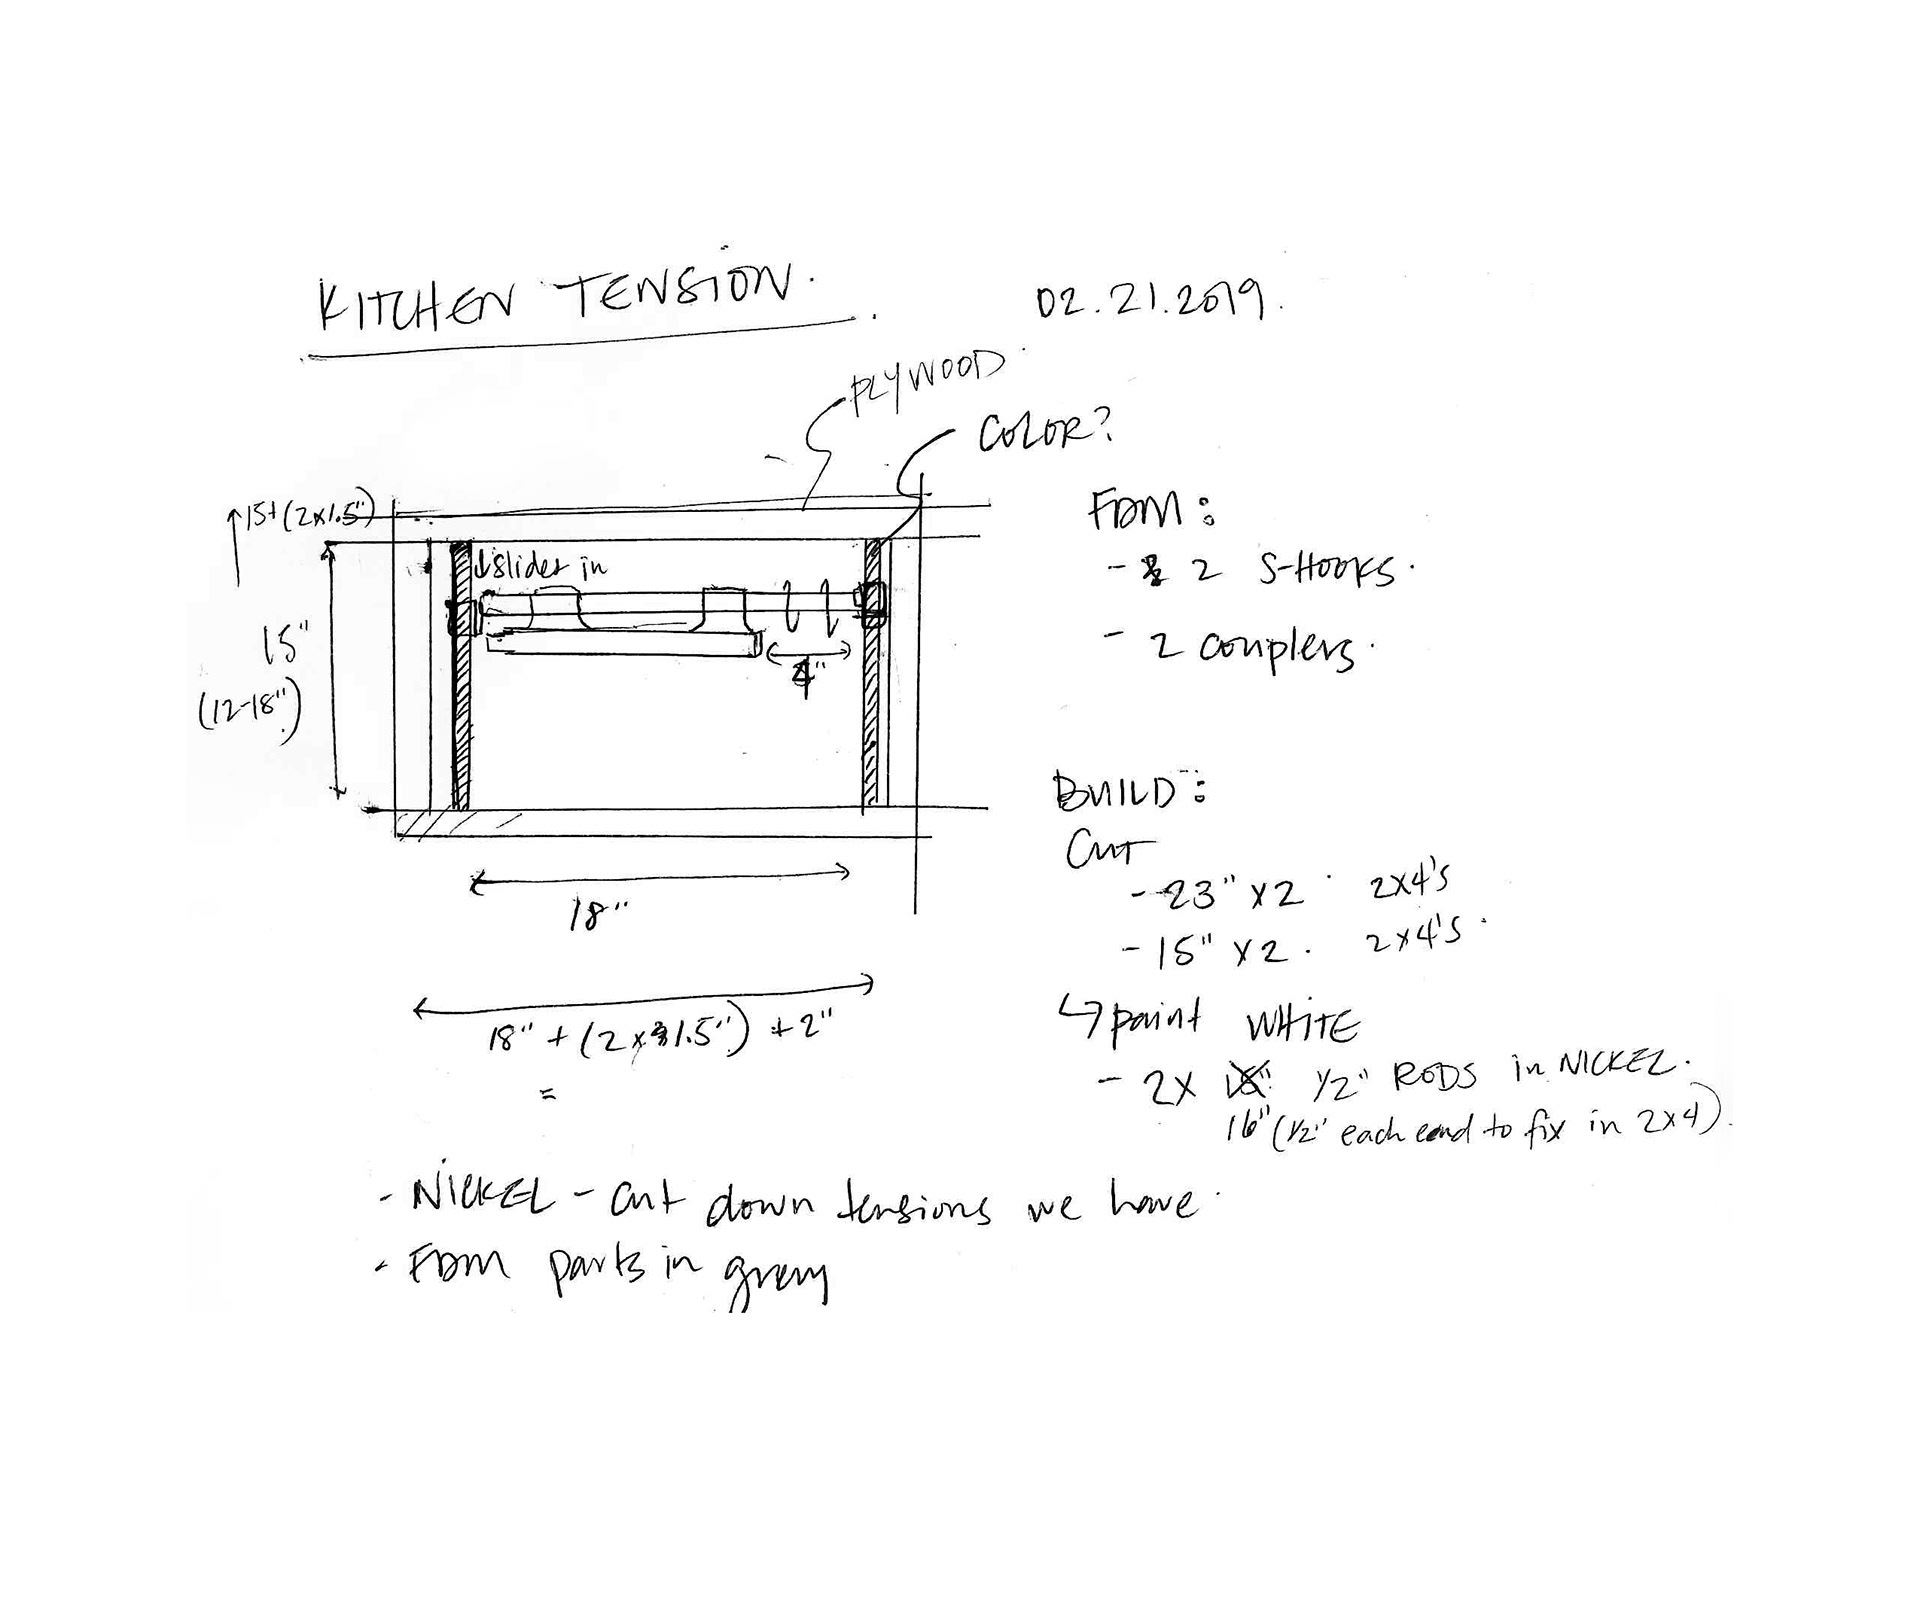 KITCHEN TENSION.
02.21.2019.
PLYWOOD
COLOR?
15+(2x1.5")
↓slides in
15"
(12-18")
4"
18"
18" + (2x1.5") + 2"
=
FDM:
- 2 S-HOOKS.
- 2 couplers.
BUILD:
CUT
- 23" x2 2x4's
- 15" x2. 2x4's
↳ paint WHITE
- 2x 1/2" RODS in NICKEL.
16" (1/2" each end to fix in 2x4).
- NICKEL - cut down tensions we have
- FDM parts in grey